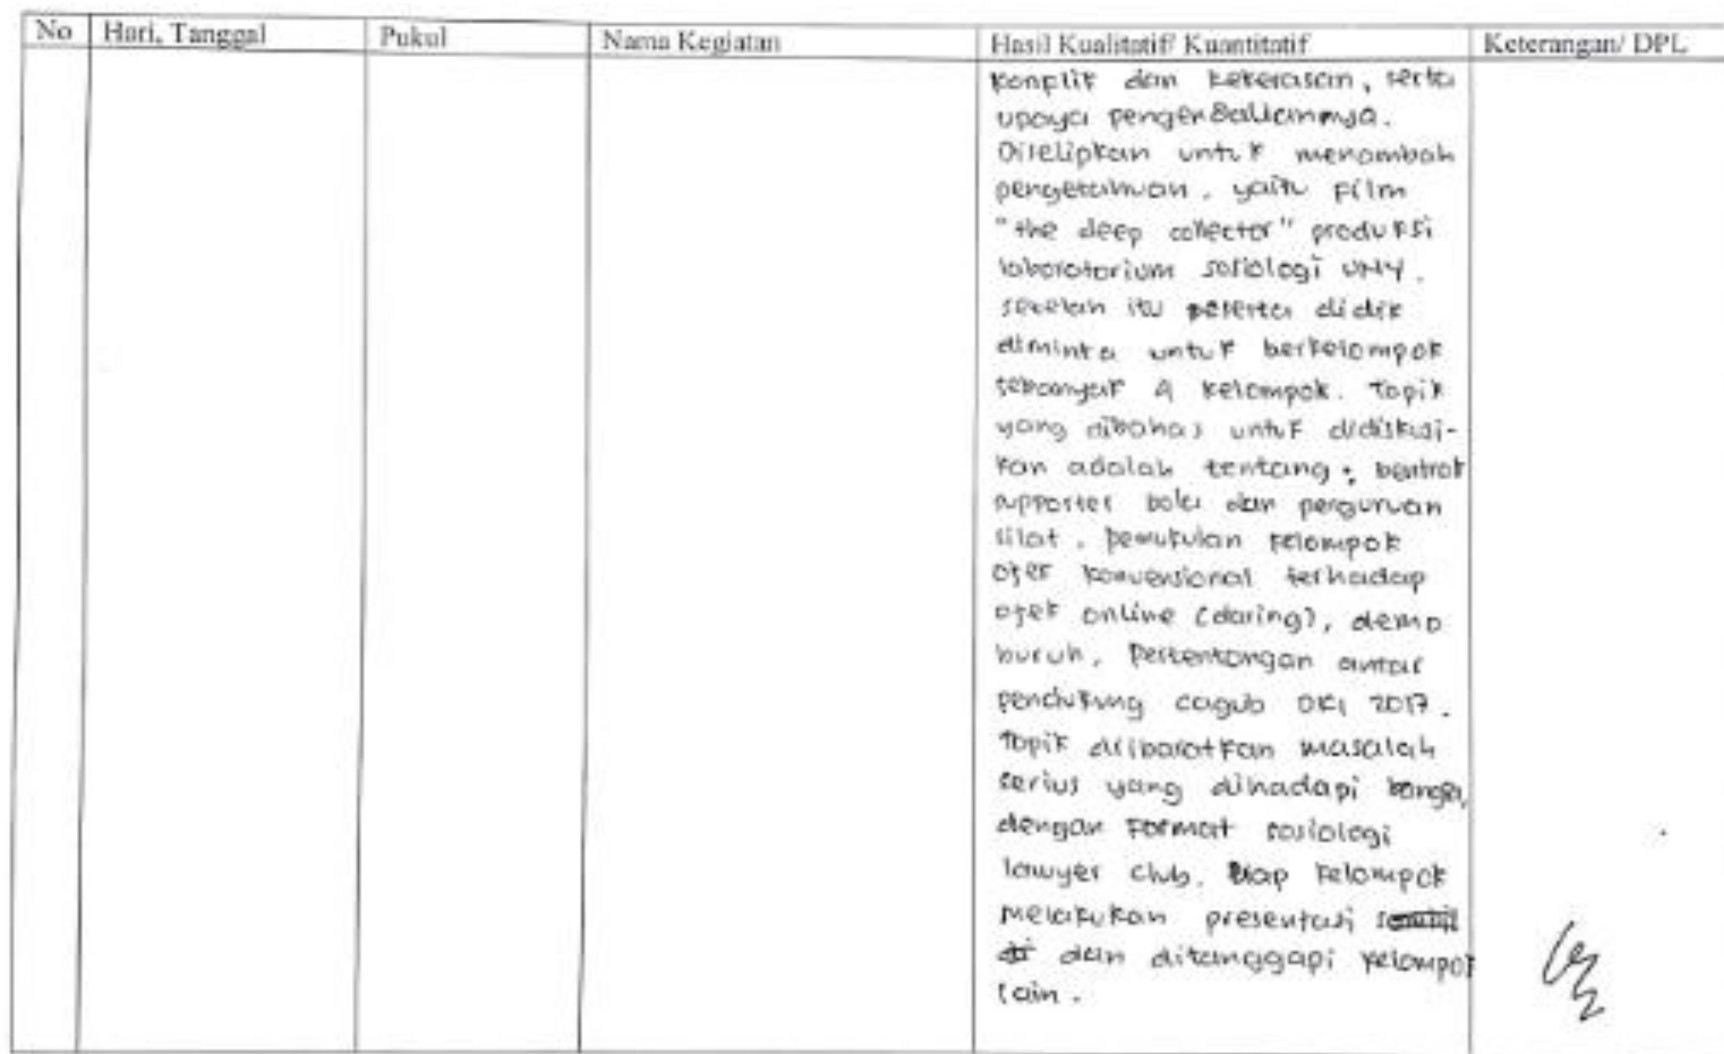 No Hari, Tanggal Pukul Nama Kegiatan Hasil Kualitatif/ Kuantitatif Keterangan/ DPL
konflik dan kekerasan, serta
upaya pengendaliannya.
Diselipkan untuk menambah
pengetahuan, yaitu film
"the deep collector" produksi
laboratorium sosiologi UNY.
setelah itu peserta didik
diminta untuk berkelompok
sebanyak 4 kelompok. Topik
yang dibahas untuk didiskusi-
kan adalah tentang : bentrok
supporter bola dan perguruan
silat, pemukulan kelompok
ojek konvensional terhadap
ojek online (daring), demo
buruh, pertentangan antar
pendukung cagub DKI 2017.
Topik diibaratkan masalah
serius yang dihadapi bangsa,
dengan format sosiologi
lawyer club. tiap kelompok
melakukan presentasi sambil
di dan ditanggapi kelompok
lain.